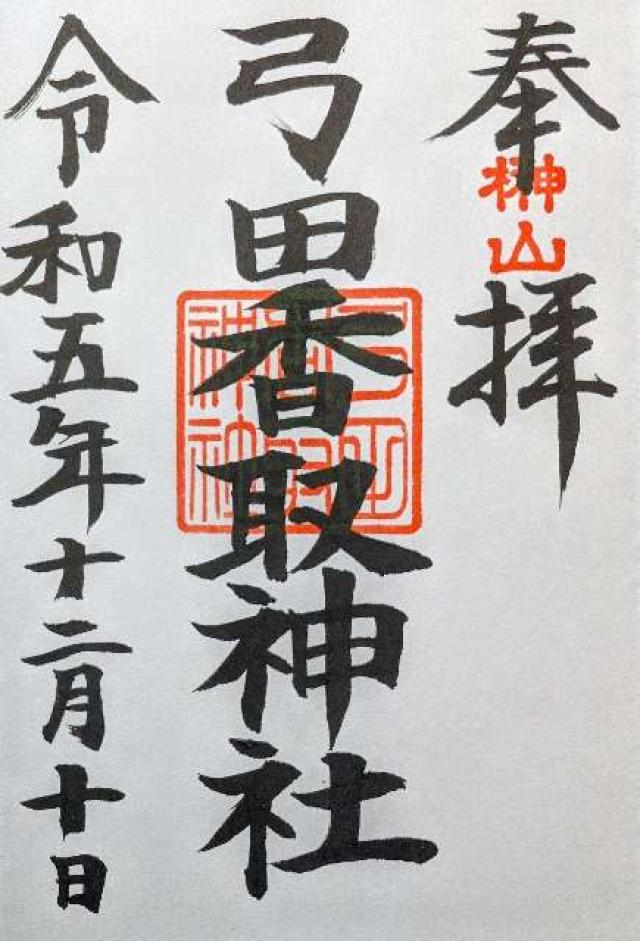 奉拝
榊山
弓田香取神社
令和五年十二月十日